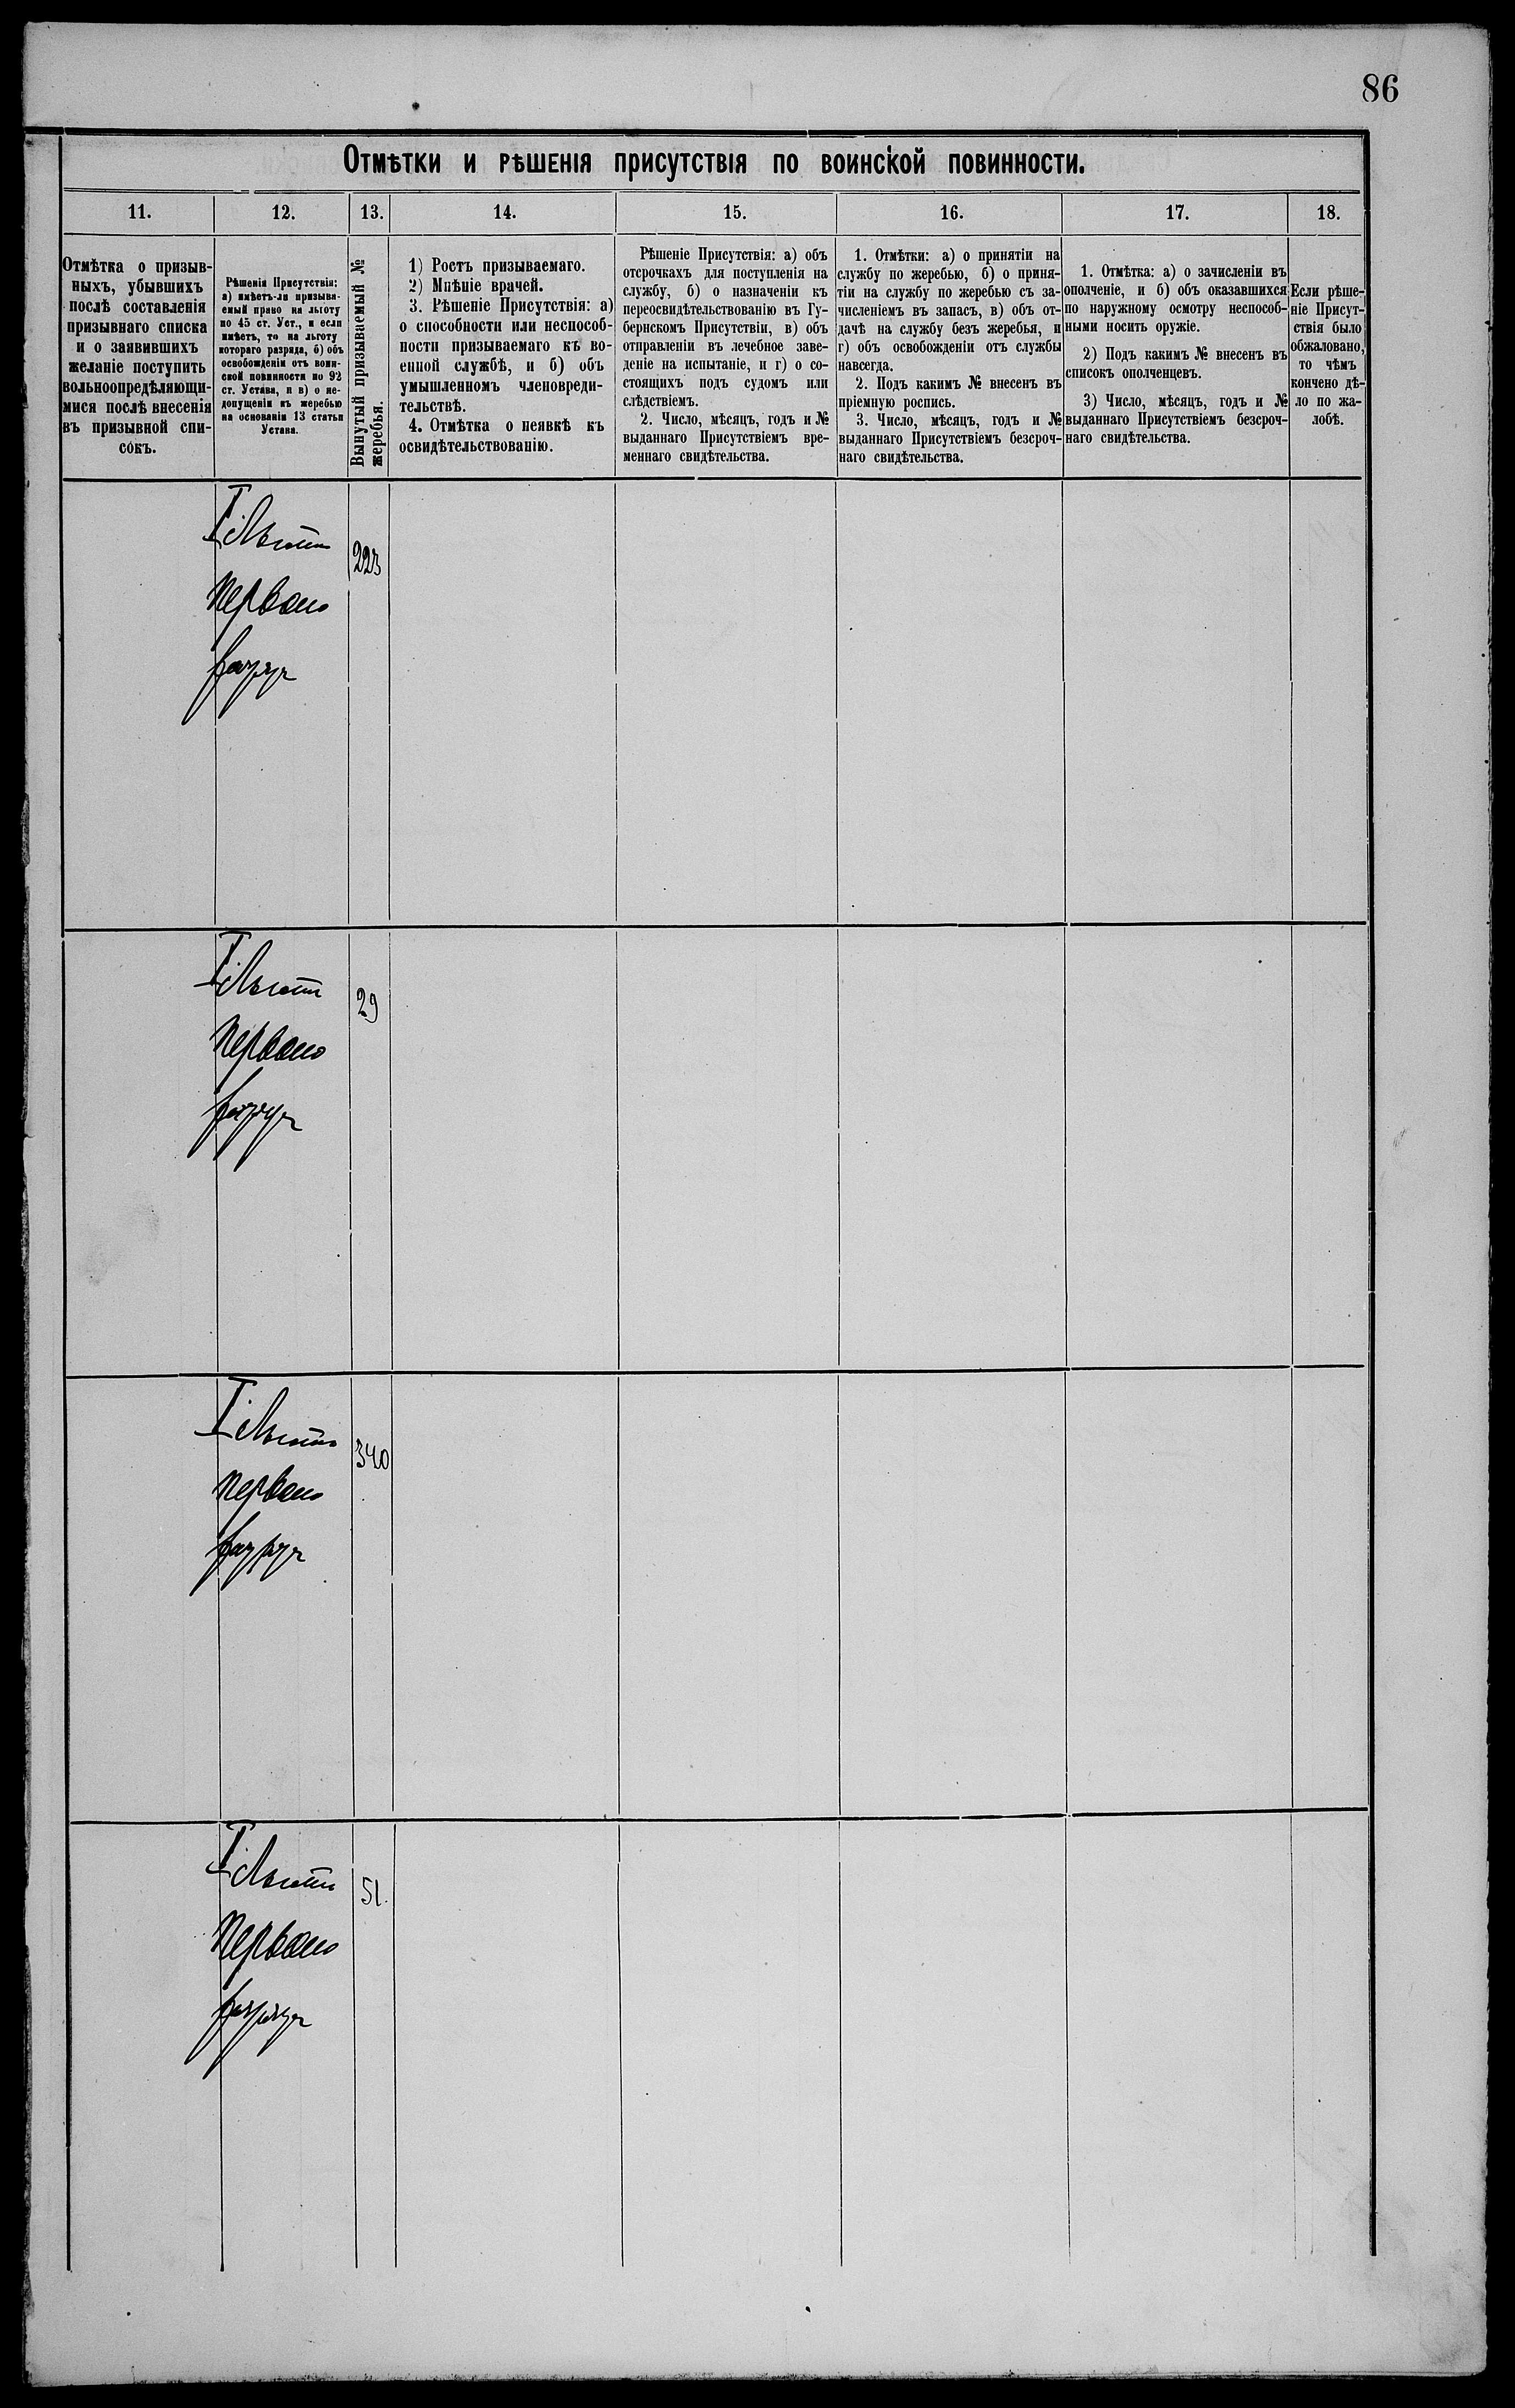 86
Отмѣтки и рѣшенія присутствія по воинской повинности.
11.
12.
13.
14.
15.
16.
17.
18.
Отмѣтка о призыв-
ныхъ, убывшихъ
послѣ составленія
призывнаго списка
и о заявившихъ
желаніе поступить
вольноопредѣляющи-
мися послѣ внесенія
въ призывной спи-
сокъ.
Рѣшенія Присутствія:
а) имѣетъ-ли призыва-
емый право на льготу
по 45 ст. Уст., и если
имѣетъ, то на льготу
котораго разряда, б) объ
освобожденіи отъ воин-
ской повинности по 92
ст. Устава, и в) о не-
допущеніи къ жеребью
на основаніи 13 статьи
Устава.
Вынутый призываемый №
жеребья.
1) Ростъ призываемаго.
2) Мнѣніе врачей.
3. Рѣшеніе Присутствія: а)
о способности или неспособ-
ности призываемаго къ во-
енной службѣ, и б) объ
умышленномъ членовреди-
тельствѣ.
4. Отмѣтка о неявкѣ къ
освидѣтельствованію.
Рѣшеніе Присутствія: а) объ
отсрочкахъ для поступленія на
службу, б) о назначеніи къ
переосвидѣтельствованію въ Гу-
бернскомъ Присутствіи, в) объ
отправленіи въ лечебное заве-
деніе на испытаніе, и г) о со-
стоящихъ подъ судомъ или
слѣдствіемъ.
2. Число, мѣсяцъ, годъ и №
выданнаго Присутствіемъ вре-
меннаго свидѣтельства.
1. Отмѣтки: а) о принятіи на
службу по жеребью, б) о приня-
тіи на службу по жеребью съ за-
численіемъ въ запасъ, в) объ от-
дачѣ на службу безъ жеребья, и
г) объ освобожденіи отъ службы
навсегда.
2. Подъ какимъ № внесенъ въ
пріемную роспись.
3. Число, мѣсяцъ, годъ и №
выданнаго Присутствіемъ безсроч-
наго свидѣтельства.
1. Отмѣтка: а) о зачисленіи въ
ополченіе, и б) объ оказавшихся
по наружному осмотру неспособ-
ными носить оружіе.
2) Подъ какимъ № внесенъ въ
списокъ ополченцевъ.
3) Число, мѣсяцъ, годъ и №
выданнаго Присутствіемъ безсроч-
наго свидѣтельства.
Если рѣше-
ніе Присут-
ствія было
обжаловано,
то чѣмъ
кончено дѣ-
ло по жа-
лобѣ.
I Льгота
первого
разряда
223
I Льгота
первого
разряда
29
I Льгота
первого
разряда
340
I Льгота
первого
разряда
51.